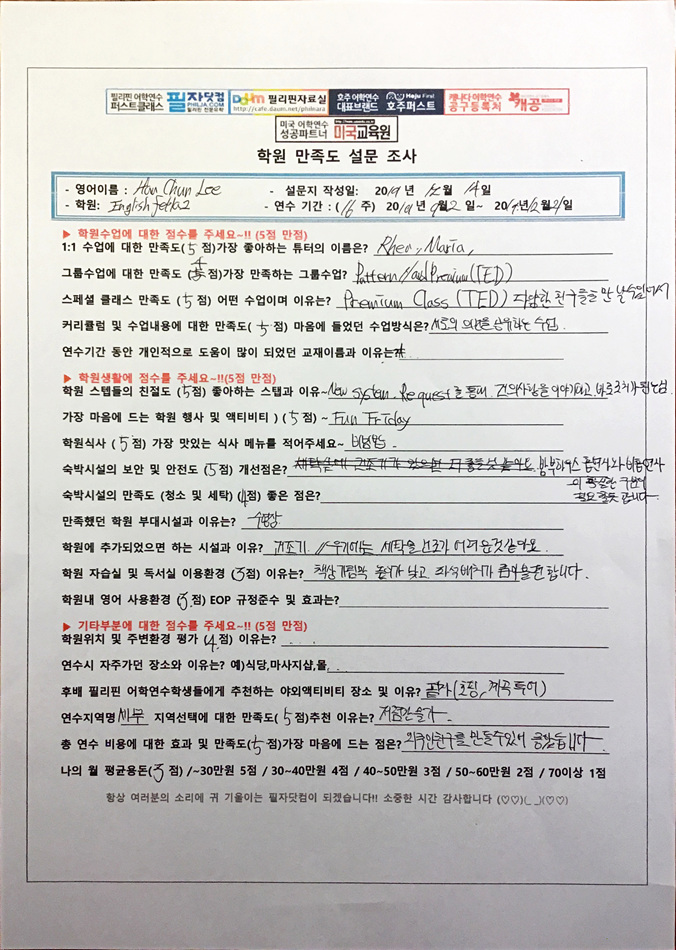 필리핀 어학연수 퍼스트클래스 필자닷컴 PHILJA.COM 필리핀 전문유학 Daum 필리핀자료실 http://cafe.daum.net/philnara 호주 어학연수 대표브랜드 Hoju First 호주퍼스트 캐나다 어학연수 공구등록처 캐공
미국 어학연수 성공파트너 미국교육원
학원 만족도 설문 조사
- 영어이름 : Chun Lee - 설문지 작성일: 2019 년 12월 14일
- 학원: English fella2 - 연수 기간 : (16 주) 2019 년 9월 2 일~ 2019년12월21일
▶ 학원수업에 대한 점수를 주세요~!! (5점 만점)
1:1 수업에 대한 만족도(5 점)가장 좋아하는 튜터의 이름은? Rhea, Maria,
그룹수업에 대한 만족도 (4점)가장 만족하는 그룹수업? Pattern // and Premium(TED)
스페셜 클래스 만족도 (5점) 어떤 수업이며 이유는? Premium Class (TED) 다양한 친구들을 만날수있어서
커리큘럼 및 수업내용에 대한 만족도( 5점) 마음에 들었던 수업방식은? 서로의 의견을 공유하는 수업.
연수기간 동안 개인적으로 도움이 많이 되었던 교재이름과 이유는?
▶ 학원생활에 점수를 주세요~!!(5점 만점)
학원 스텝들의 친절도 (5점) 좋아하는 스탭과 이유~ New system. Request를 통해 건의사항을 이야기하고 바로조치가
가장 마음에 드는 학원 행사 및 액티비티 ) (5점) ~ Fun Friday
학원식사 ( 5점) 가장 맛있는 식사 메뉴를 적어주세요~ 비빔밥.
숙박시설의 보안 및 안전도 (5점) 개선점은? 흡연자와 비흡연자
의 확실한 구분이
숙박시설의 만족도 (청소 및 세탁) (4점) 좋은 점은? 필요할듯 합니다.
만족했던 학원 부대시설과 이유는? 수영장
학원에 추가되었으면 하는 시설과 이유? 건조기. // 우기에는 세탁물 건조가 어려운것같아요.
학원 자습실 및 독서실 이용환경 (3점) 이유는? 책상 높이가 낮고 좌석배치가 합니다.
학원내 영어 사용환경 (3.점) EOP 규정준수 및 효과는?
▶ 기타부분에 대한 점수를 주세요~!! (5점 만점)
학원위치 및 주변환경 평가 (4.점) 이유는?
연수시 자주가던 장소와 이유는? 예)식당,마사지샵,몰
후배 필리핀 어학연수학생들에게 추천하는 야외액티비티 장소 및 이유? (호핑, 계곡 투어)
연수지역명 세부 지역선택에 대한 만족도( 5점)추천 이유는?
총 연수 비용에 대한 효과 및 만족도(5점)가장 마음에 드는 점은? 외국인친구를 만들수있어 좋았습니다.
나의 월 평균용돈(3점) /~30만원 5점 / 30~40만원 4점 / 40~50만원 3점 / 50~60만원 2점 / 70이상 1점
항상 여러분의 소리에 귀 기울이는 필자닷컴이 되겠습니다!! 소중한 시간 감사합니다 (♡♡)(_ _)(♡♡)